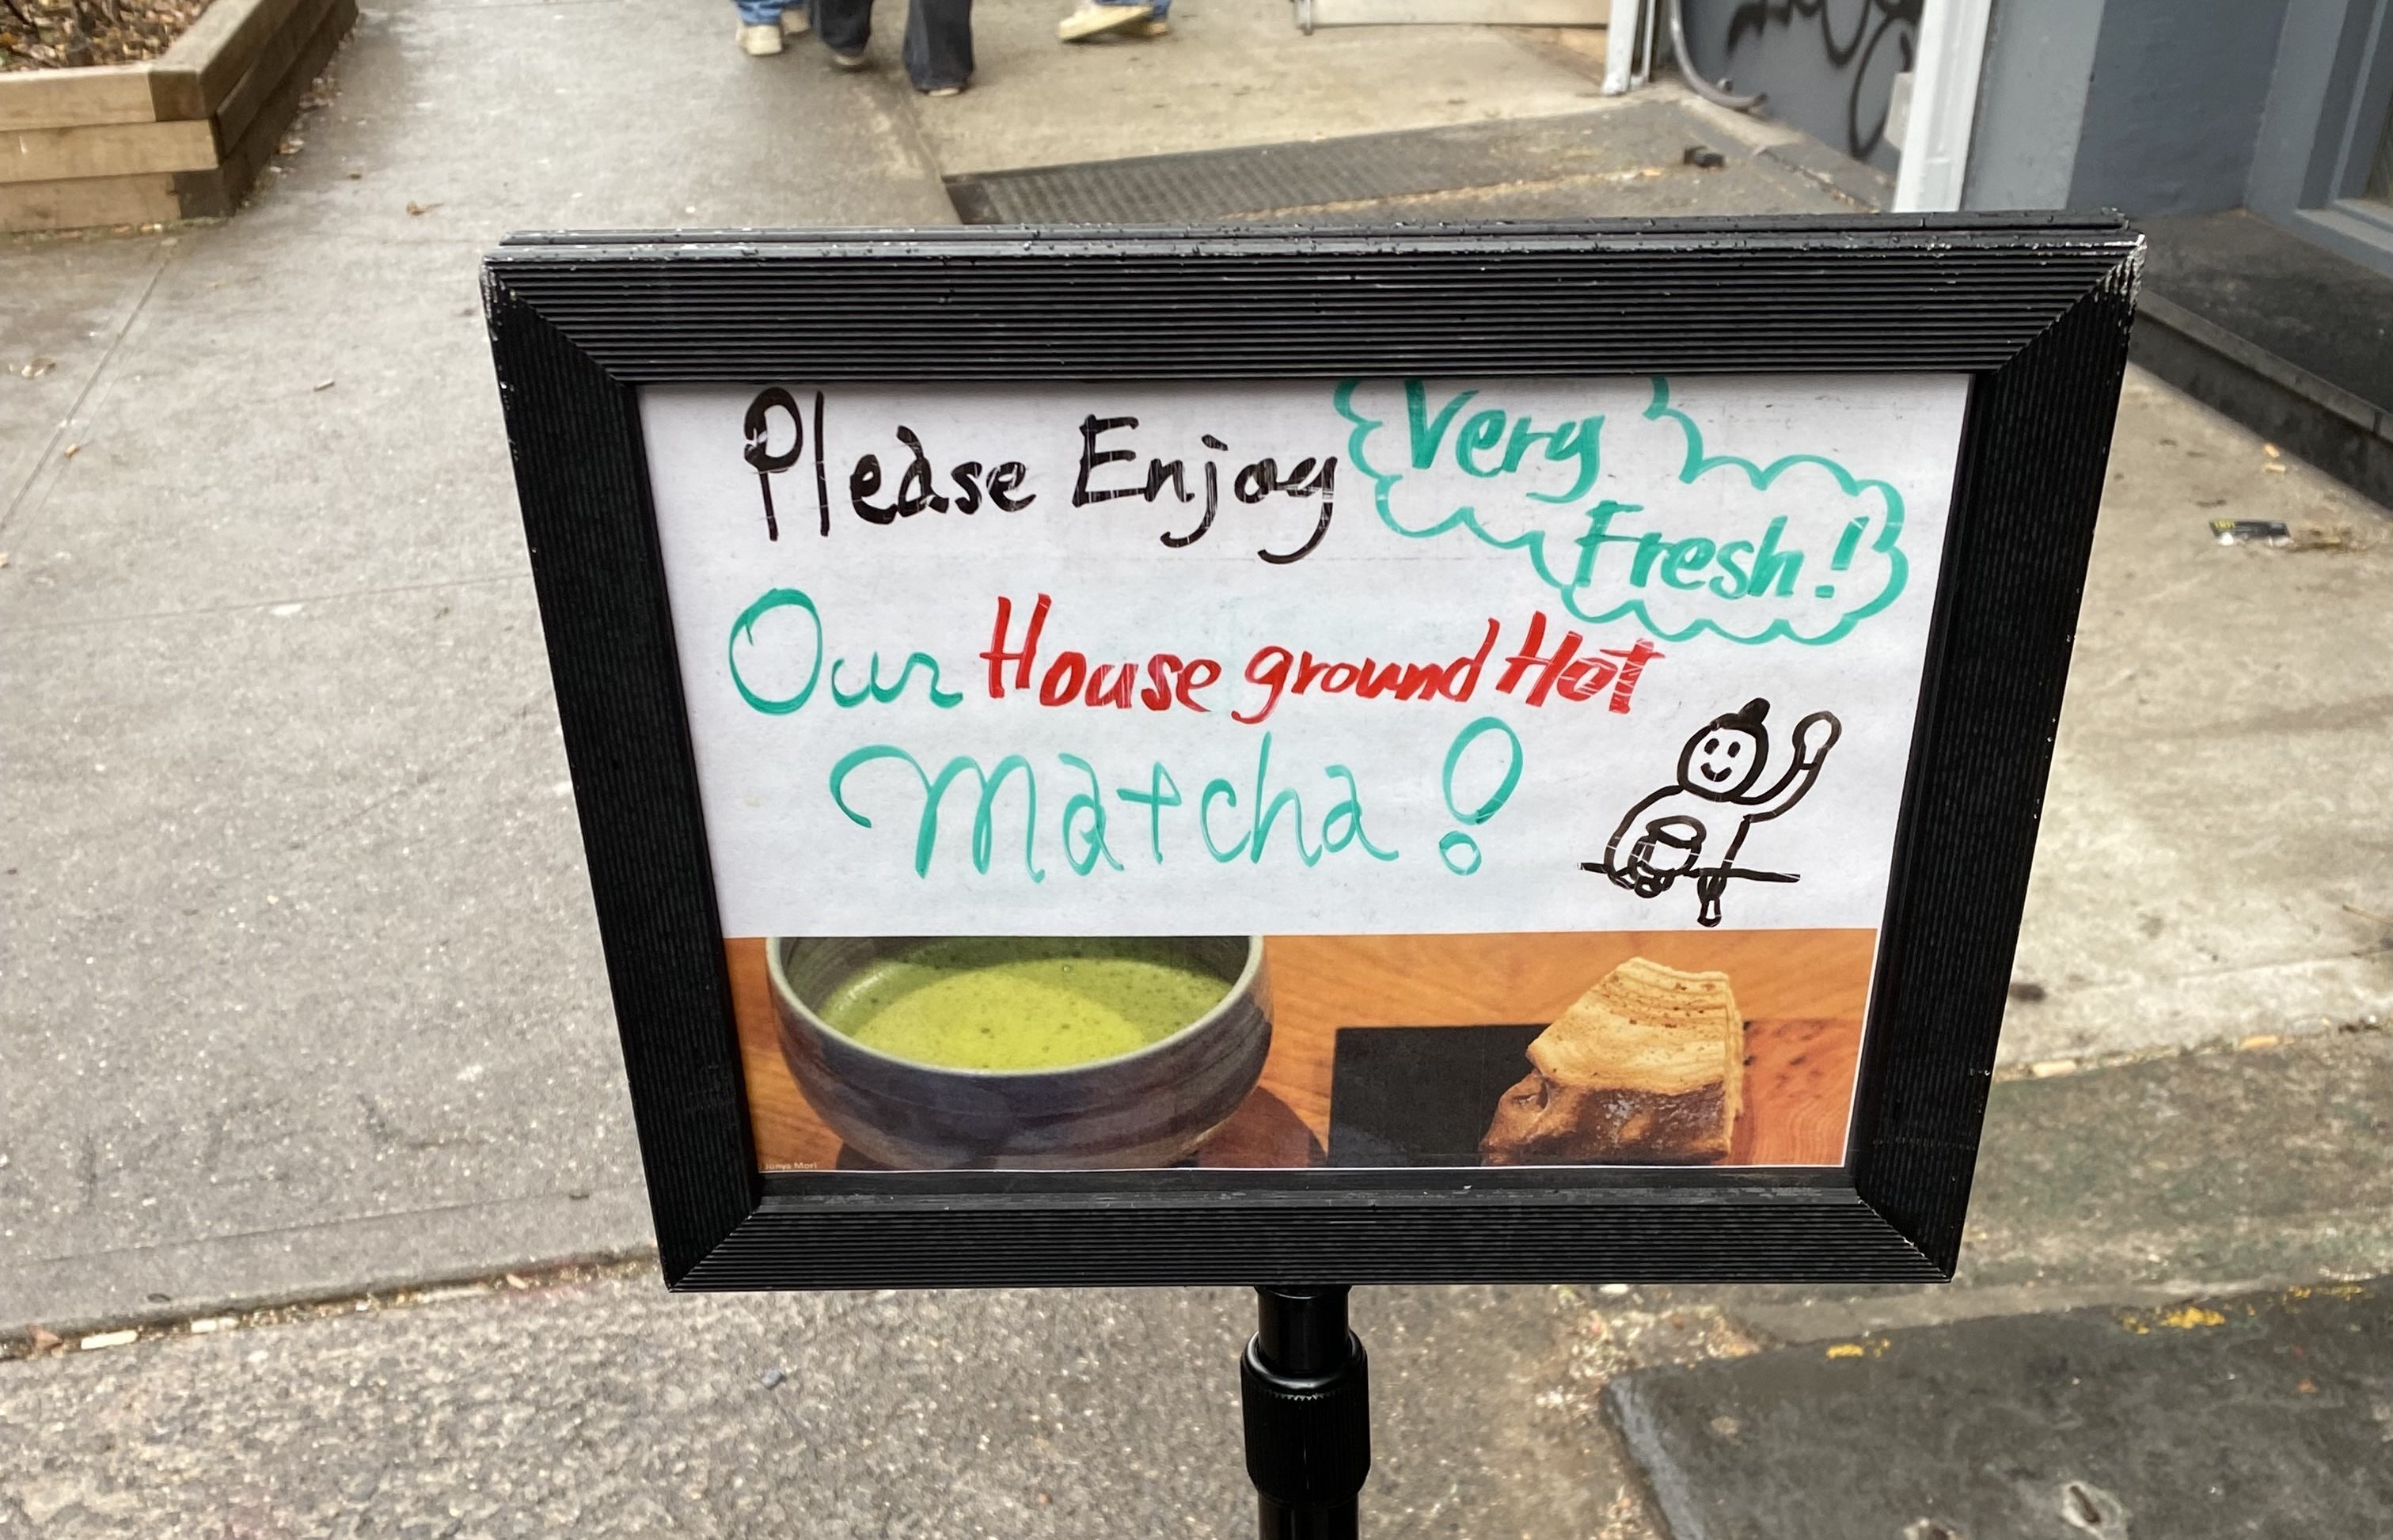 Please Enjoy
Very
Fresh!
Our House ground Hot
Matcha!
Junya Mori